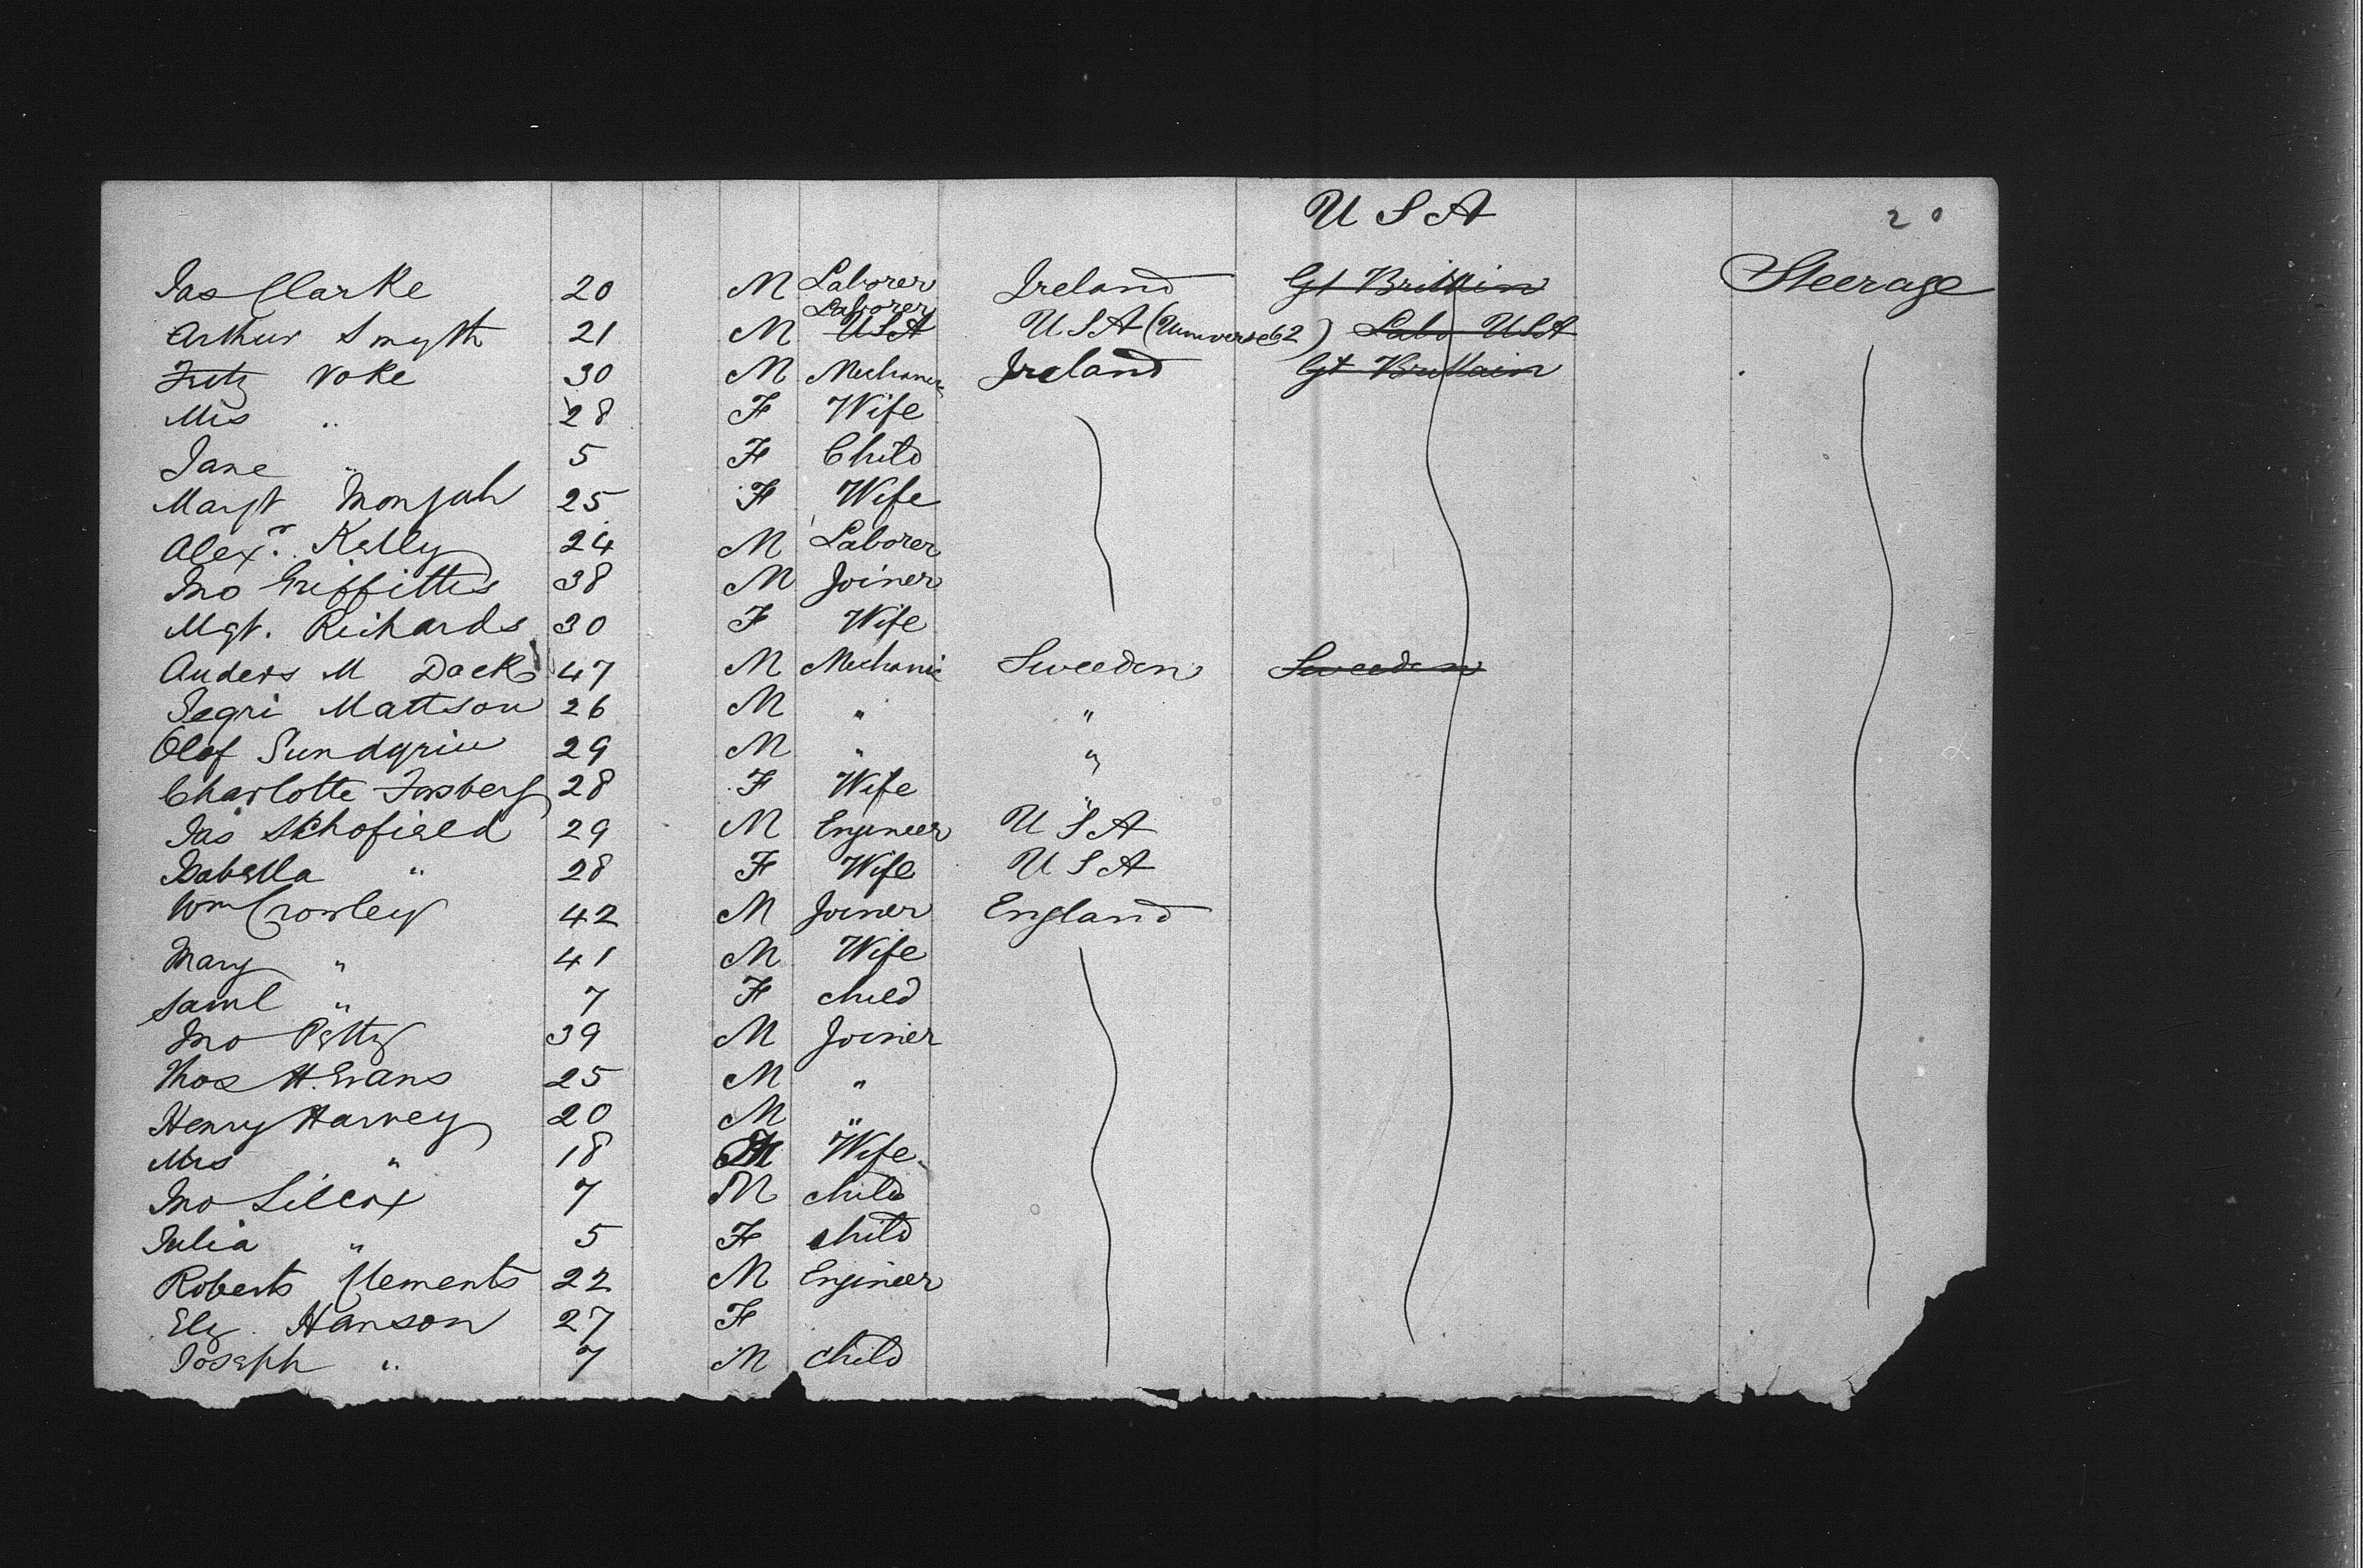 U S A 20
Jas Clarke 20 M Laborer Ireland Gt Brittain Steerage
Laborer
Arthur Smyth 21 M USA USA ( 62) Labo USA
Fritz Voke 30 M Mechanic Ireland Gt Brittain
Mrs " 28 F Wife
Jane " 5 F Child
Margt 25 F Wife
Alexr. Kelly 24 M Laborer
Jno Griffitths 38 M Joiner
Mgt. Richards 30 F Wife
Anders M Dack 47 M Mechanic Sweeden Sweeden
Mattson 26 M " "
Olof 29 M " "
Charlotte Forsberg 28 F Wife "
Jas Schofield 29 M Engineer U S A
Isabella " 28 F Wife U S A
Wm Crowley 42 M Joiner England
Mary " 41 M Wife
Saml " 7 F child
Jno Petty 39 M Joiner
Thos H. Evans 25 M "
Henry Harvey 20 M "
Mrs " 18 Wife
Jno Silcox 7 M child
Julia " 5 F child
Roberts Clements 22 M Engineer
Elz. Hanson 27 F
Joseph " 7 M child